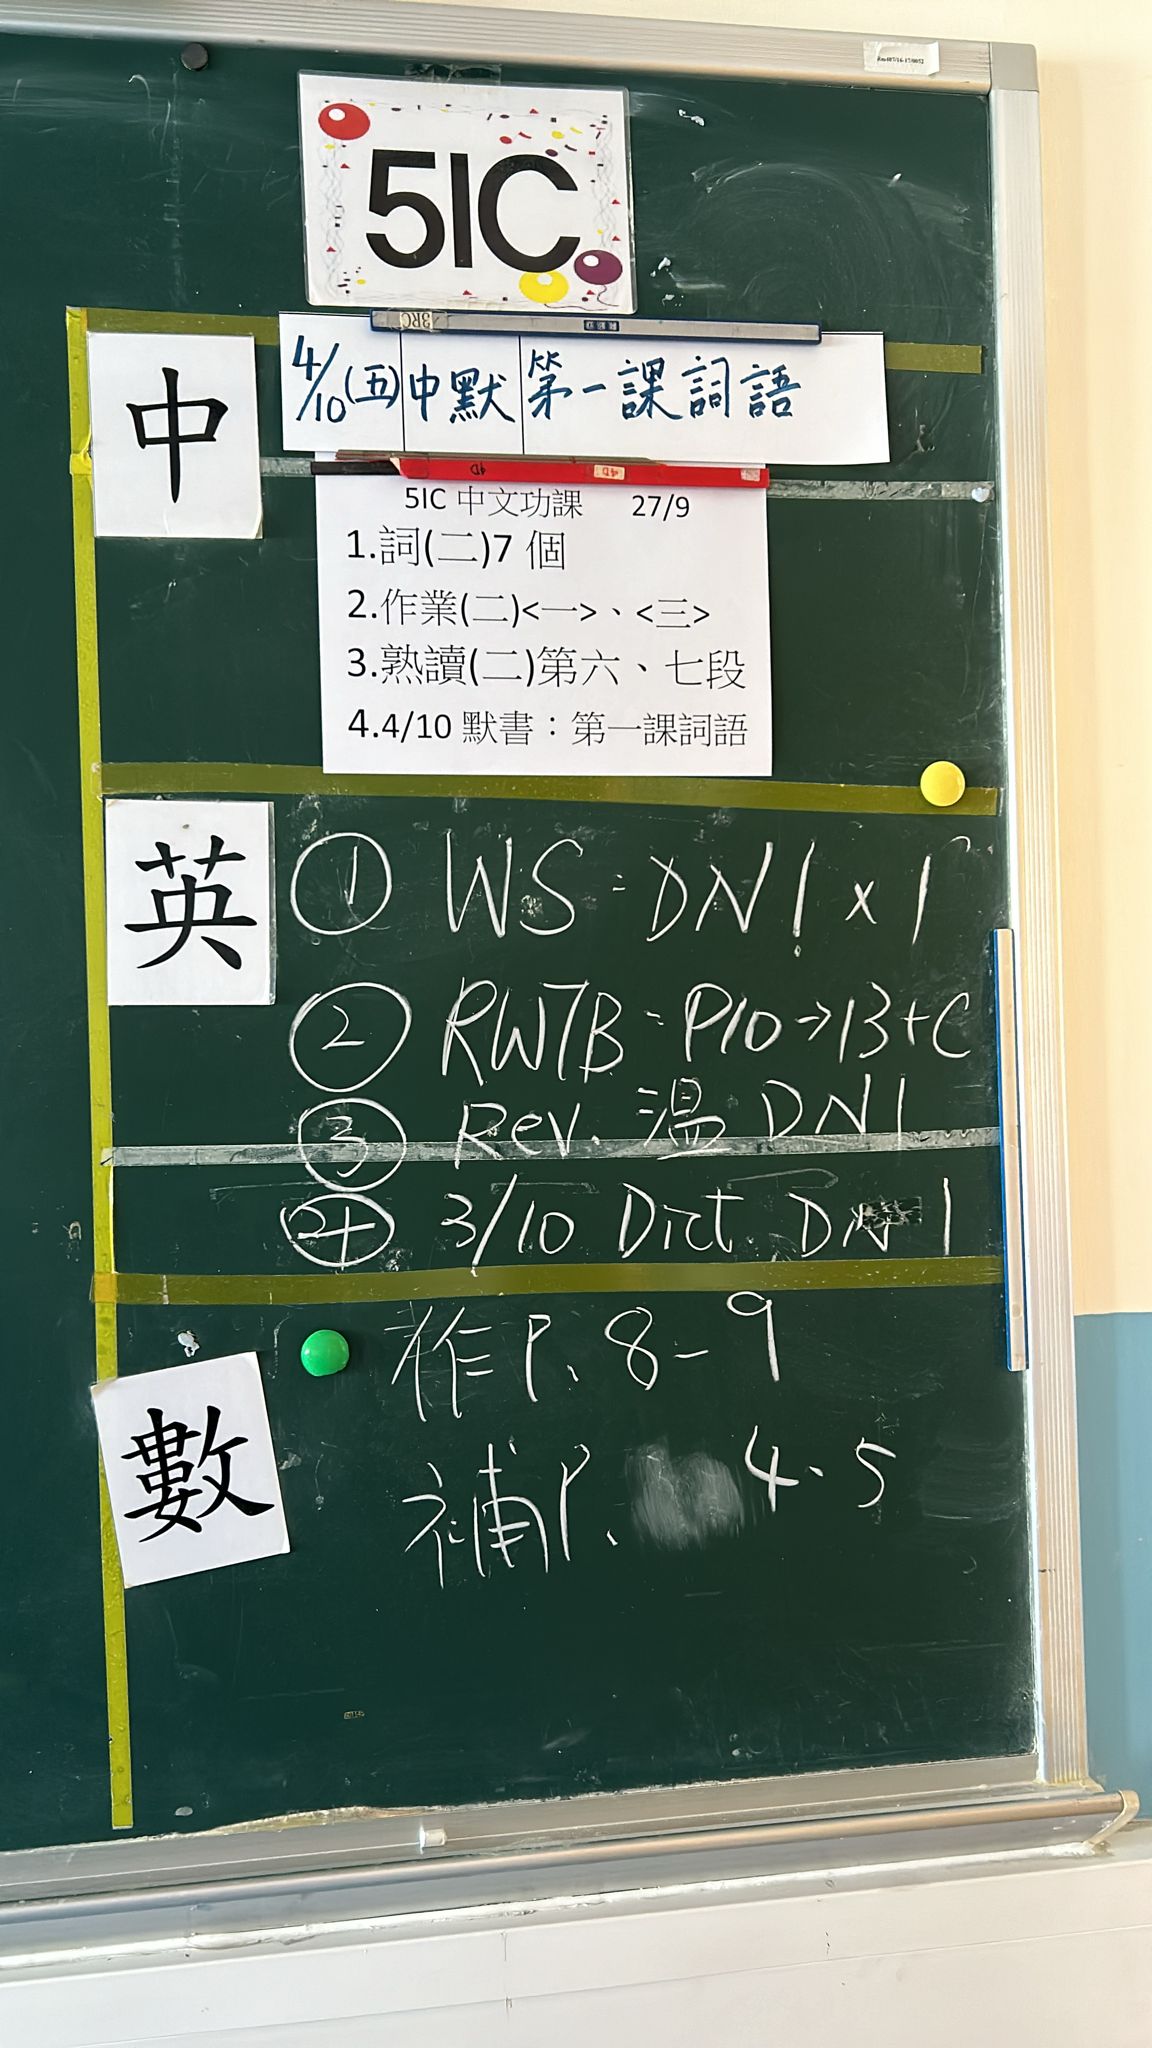 5IC
中
4/10(五) 中默 第一課詞語
5IC 中文功課 27/9
1.詞(二)7 個
2.作業(二)<一>、<三>
3.熟讀(二)第六、七段
4.4/10 默書：第一課詞語
英
① WS = DN1 x 1
② RWTB = P10→13+C
③ Rev. 温 DN1
④ 3/10 Dict DN 1
數
作P. 8-9
補P. 4、5